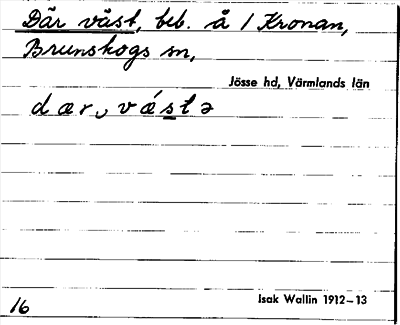 Där väst, beb. å 1 Kronan,
Brunskogs sn,
Jösse hd, Värmlands län
dær, vǽstə
Isak Wallin 1912–13
16